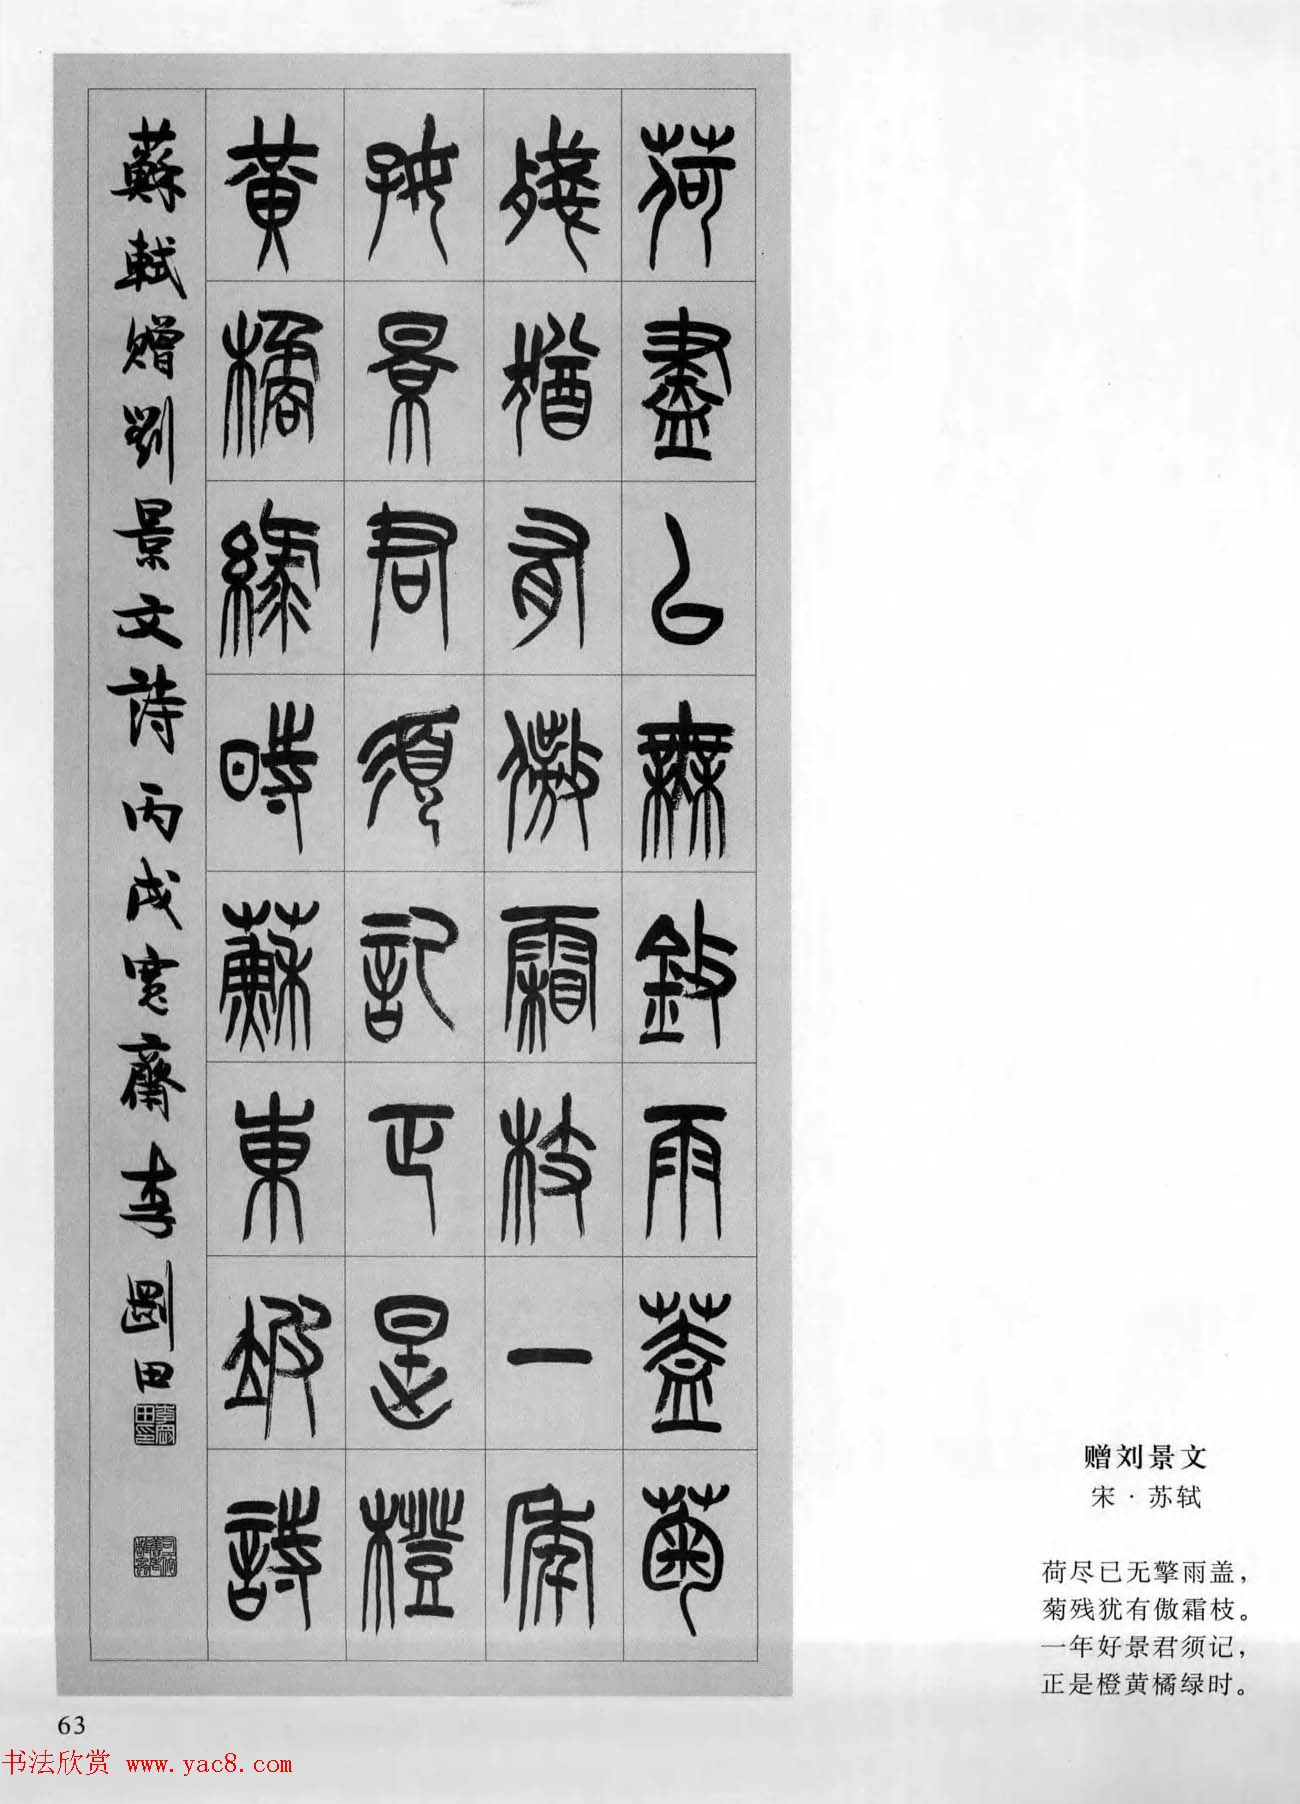 荷盡已無擎雨蓋菊
殘猶有傲霜枝一年
好景君須記正是橙
黃橘綠時蘇東坡詩
蘇軾贈劉景文詩丙戌寬齋李剛田
李剛田印
赠刘景文
宋·苏轼
荷尽已无擎雨盖，
菊残犹有傲霜枝。
一年好景君须记，
正是橙黄橘绿时。
63
书法欣赏 www.yac8.com